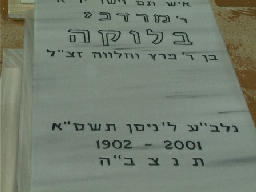 איש תם וישר
ר׳ מרדכי
בלוקה
בן ר׳ פרץ וחלווה זצ״ל
נלב״ע ל׳ ניסן תשס״א
1902 - 2001
ת נ צ ב״ה